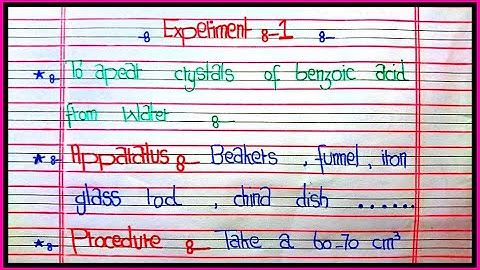 Experiment 8-1 8-
* 8- To apear crystals of benzoic acid
from Water 8-
* 8- Apparatus 8- Beakers , funnel , iron
glass rod , china dish ......
* 8- Procedure 8- Take a 60-70 cm³